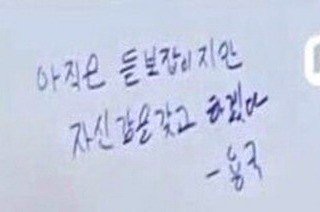 아직은 듣보잡이지만
자신감을 갖고 하겠다
- 용국